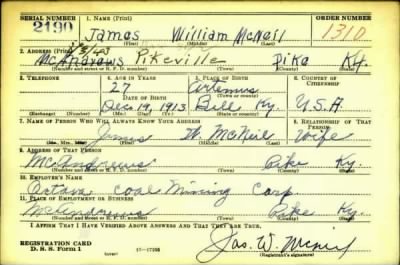 SERIAL NUMBER 1. NAME (Print) ORDER NUMBER
2190 James William McNeil 1310
(First) (Middle) (Last)
2. ADDRESS (Print)
McAndrews Pikeville Pike Ky.
(Number and street or R. F. D. number) (Town) (County) (State)
3. TELEPHONE 4. AGE IN YEARS 5. PLACE OF BIRTH 6. COUNTRY OF CITIZENSHIP
27 Artemus
DATE OF BIRTH
Dec. 19, 1913 Bell Ky. U.S.A
(Exchange) (Number) (Mo.) (Day) (Yr.) (Town) (County) (State)
7. NAME OF PERSON WHO WILL ALWAYS KNOW YOUR ADDRESS 8. RELATIONSHIP OF THAT PERSON
W. McNeil Wife
(Mr., Mrs., Miss) (First) (Middle) (Last)
9. ADDRESS OF THAT PERSON
McAndrews Pike Ky.
(Number and street or R. F. D. number) (Town) (County) (State)
10. EMPLOYER'S NAME
Octava Coal Mining Corp
11. PLACE OF EMPLOYMENT OR BUSINESS
McAndrews Pike Ky.
(Number and street or R. F. D. number) (Town) (County) (State)
I AFFIRM THAT I HAVE VERIFIED ABOVE ANSWERS AND THAT THEY ARE TRUE.
REGISTRATION CARD
D. S. S. Form 1 (over) Jas. W. McNeil
(Registrant's signature)